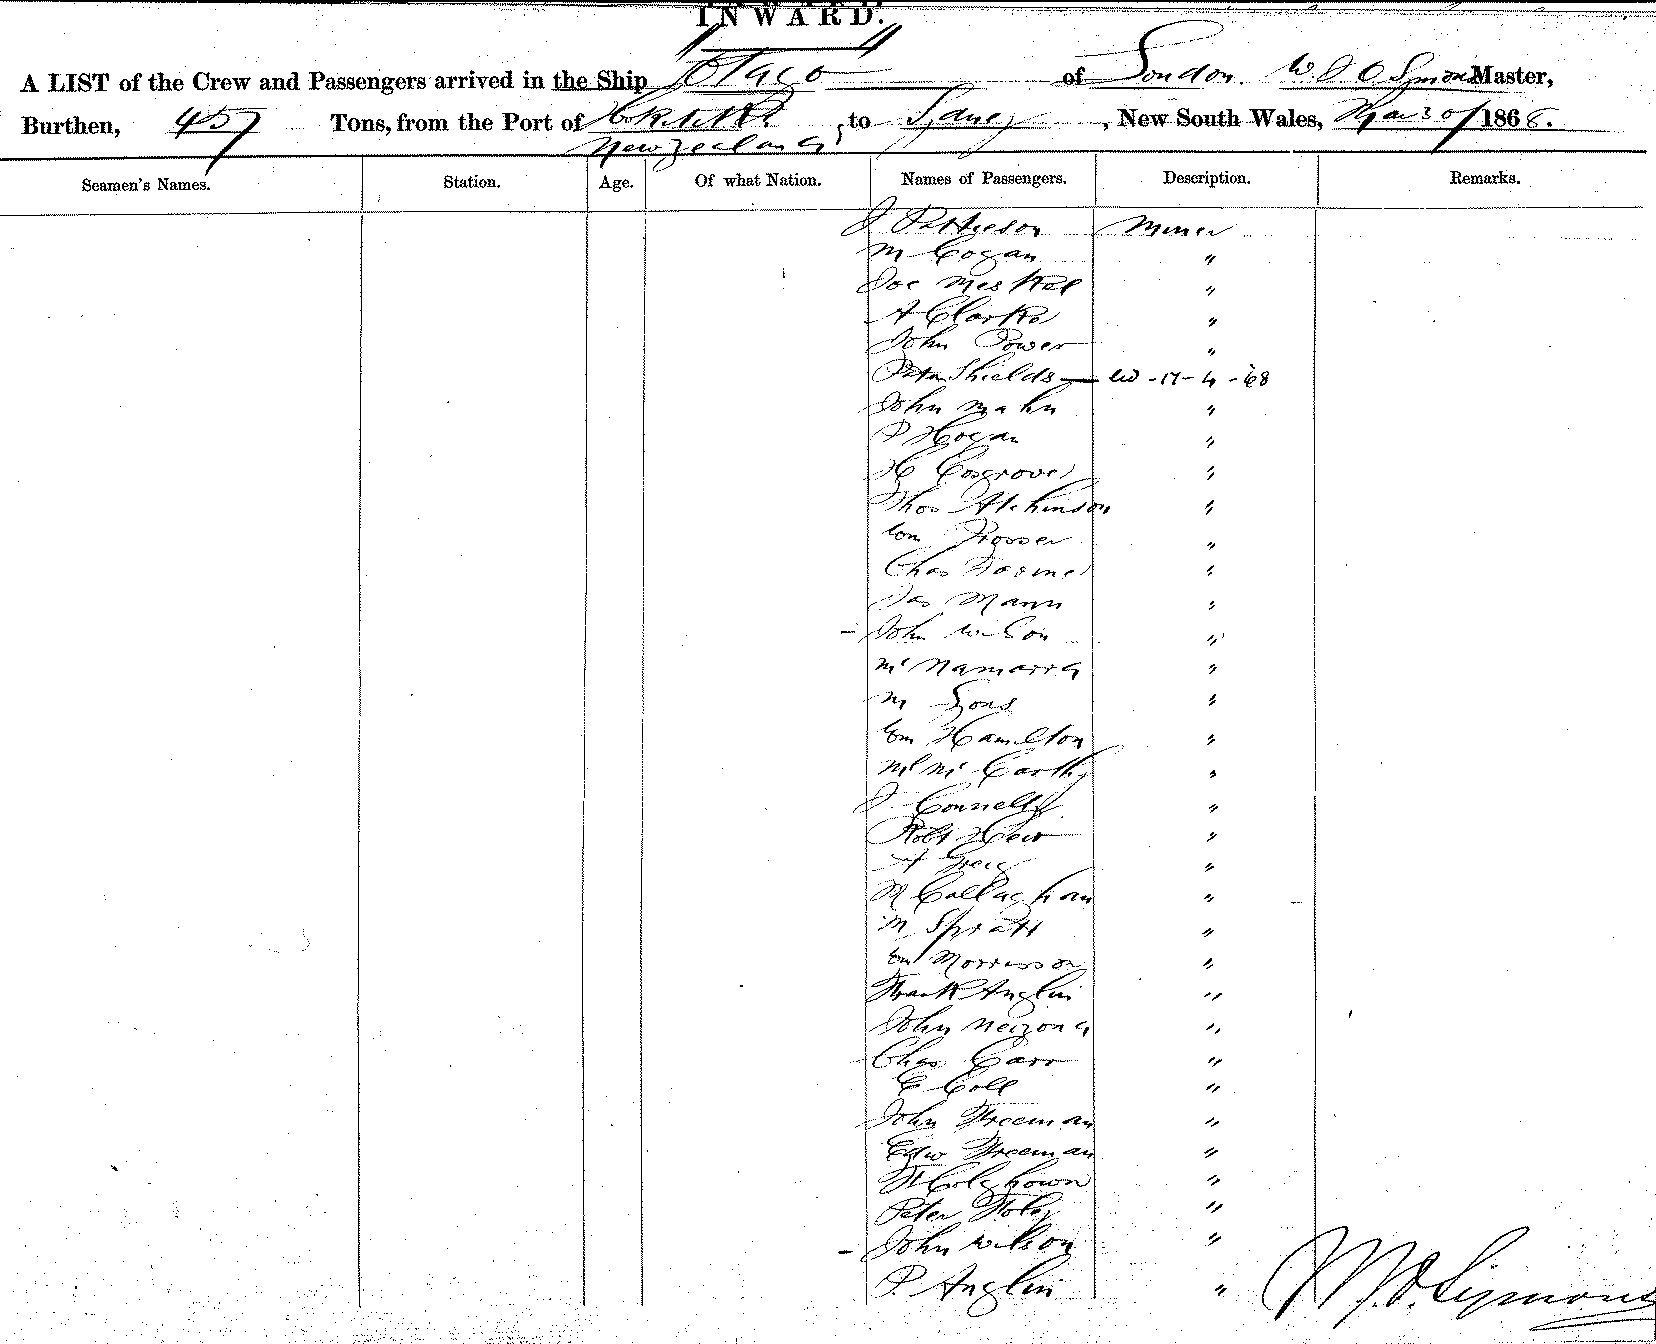 INWARD.
A LIST of the Crew and Passengers arrived in the Ship Otago of London W J O Symons Master,
Burthen, 457 Tons, from the Port of Okitiki , to Sydney , New South Wales, Mar 30 1868.
New Zealand
Seamen's Names. Station. Age. Of what Nation. Names of Passengers. Description. Remarks.
J Patterson Miner
M Cogan "
Joe Meskel "
A Clarke "
John Power "
Peter Shields — 17-4-68
John Mahn "
P Hogan "
H Cosgrove "
Thos Atchinson "
Wm Prosser "
Chas "
Jas Mann "
- John Wilson "
Mc Namarra "
M Lyons "
Wm Hamilton "
Ml Mc Carthy "
J Connelly "
Robt "
A Greig "
M Callaghan "
M Spratt "
Wm Morrisson "
Frank Anglin "
John "
Chas Carr "
C Coll "
John Freeman "
Edw Freeman "
"
Peter Foley "
- John Wilson "
P. Anglin "
W.J. Symons